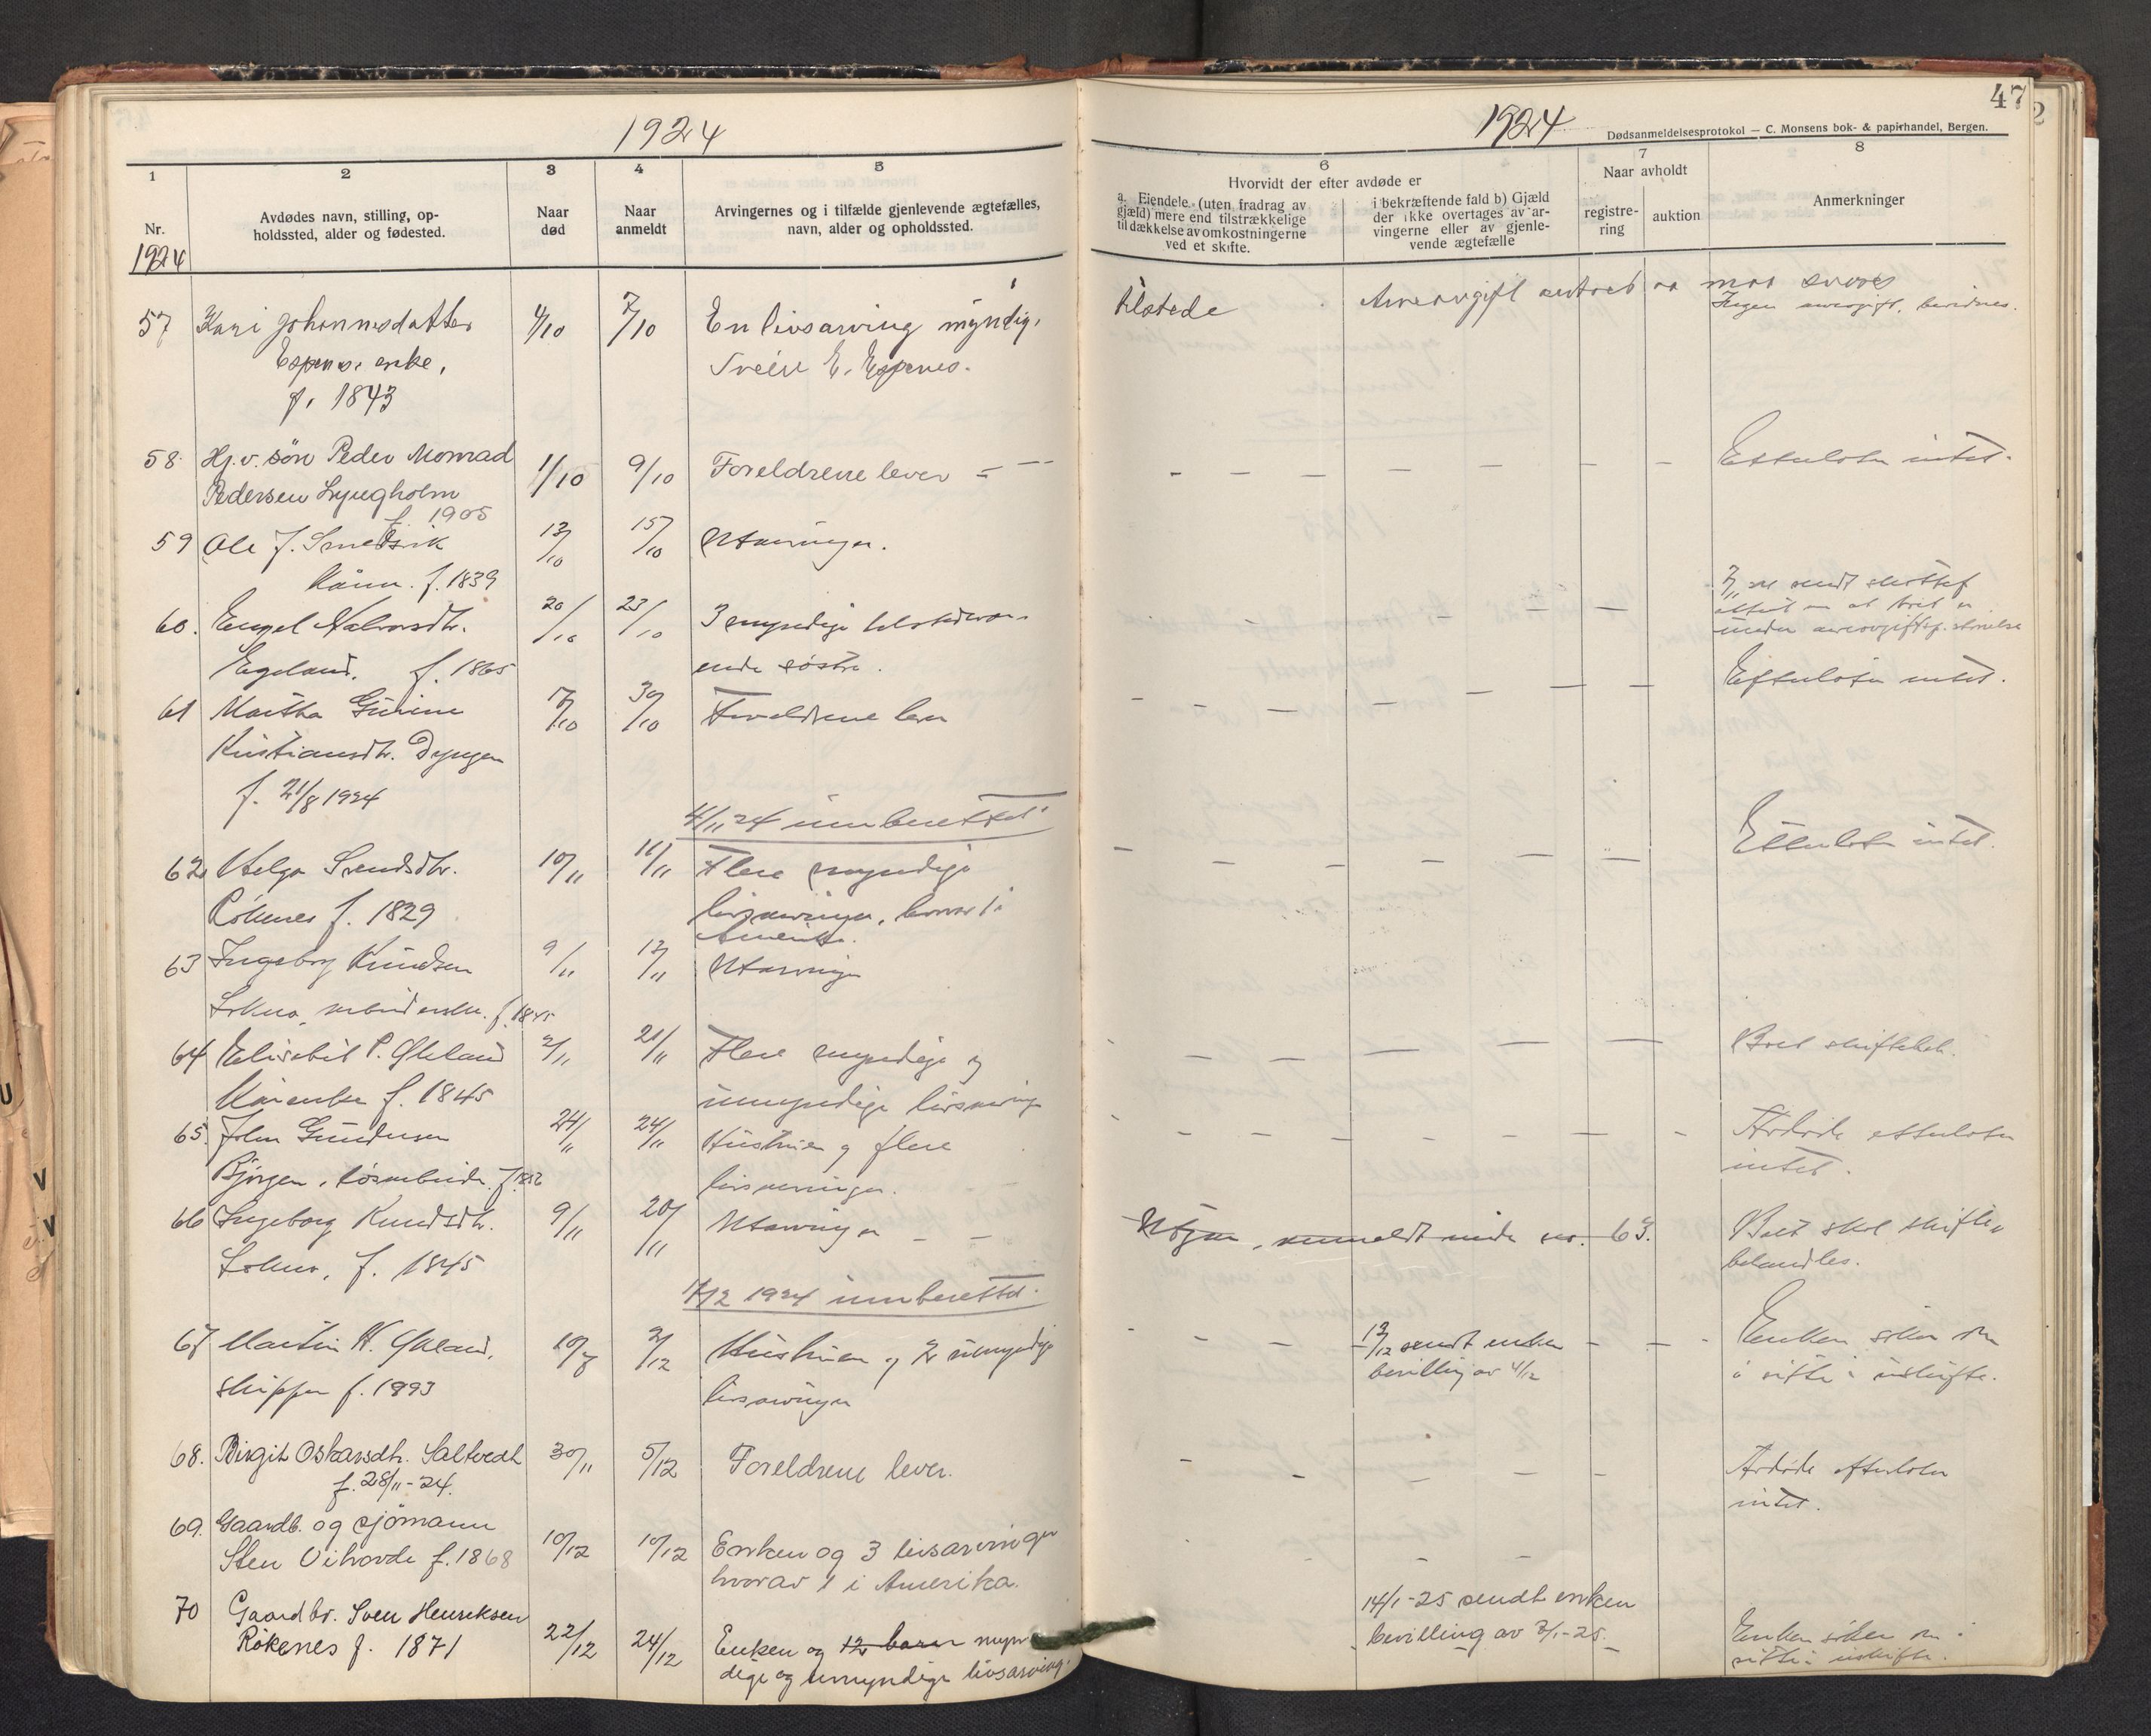 1924
1
2
3
4
5
Nr.
Avdødes navn, stilling, op-
holdssted, alder og fødested.
Naar
død
Naar
anmeldt
Arvingernes og i tilfælde gjenlevende ægtefælles,
navn, alder og opholdssted.
1924
57 Kari Johannesdatter 4/10 7/10 En livsarving myndig,
Espenes enke, Svein E. Espenes.
f. 1843
58 Hj.v. søn Peder Monrad 1/10 9/10 Foreldrene lever
Pedersen Lyngholm
f. 1905
59 Ole J. Smedsvik 13/10 15/10 Utarvinger.
Kårm. f. 1839
60. Engel Halvorsdtr. 20/10 23/10 3 myndige tilstedevær-
Egeland. f. 1865 ende søstre.
61 Martha Gurine 17/10 30/10 Foreldrene lever
Kristiansdtr. Dyngen
f. 21/8 1924
4/11 24 innberettet
62 Helga Svendsdtr. 10/11 11/11 Flere myndige
Rökenes f. 1829 livsarvinger, hvorav 1 i
Amerika.
63 Ingeborg Knudsen 9/11 13/11 Utarvinger
Lokna, f. 1845
64 Elisabet P. Økland 2/11 21/11 Flere myndige og
Kårenke f. 1845 umyndige livsarving
65. John Gundersen 24/11 24/11 Hustruen og flere
Bjørgen, løsarbeider. livsarvinger.
66 Ingeborg Knudsdtr. 9/11 20/11 Utarvinger
Lokna, f. 1845
1/12 1924 innberettet.
67 Martin H. Økland, 10/7 2/12 Hustruen og 2 umyndige
skipper f. 1893 livsarvinger
68. Birgit Oskarsdtr. Saltvedt 30/11 5/12 Foreldrene lever.
f. 28/11-24.
69. Gaardb. og sjømann
Sten Vihovde f. 1868 10/12 10/12 Enken og 3 livsarvinger
hvorav 1 i Amerika.
70 Gaardbr. Sven Henriksen
Røkenes f. 1871 22/12 24/12 Enken og 12 barn myn-
dige og umyndige livsarving.
47
1924
Dødsanmeldelsesprotokol — C. Monsens bok- & papirhandel, Bergen.
6
7
8
Hvorvidt der efter avdøde er
a. Eiendele (uten fradrag av
gjæld) mere end tilstrækkelige
til dækkelse av omkostningerne
ved et skifte.
i bekræftende fald b) Gjæld
der ikke overtages av ar-
vingerne eller av gjenle-
vende ægtefælle
Naar avholdt
registre-
ring
auktion
Anmerkninger
tilstede Arveavgift
Ingen arveavgift, beregnes.
Efterlater intet.
3/11 sendt
under
Efterlater intet.
Efterlater intet.
Boet skiftebeh.
Avdøde efterlater
intet.
Utgaar, anmeldt under no. 63. Boet skal skifte-
behandles.
13/12 sendt enken Enken sitter
bevilling av 4/12 i uskifte.
Avdøde efterlater
intet.
14/1-25 sendt enken
bevilling av 3/1-25. Enken sitter
sitte i uskifte.